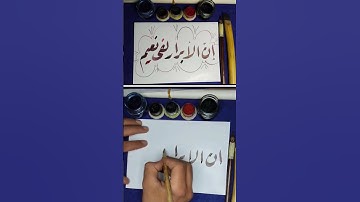 إن الأبرار لفي نعيم
ان الابرا